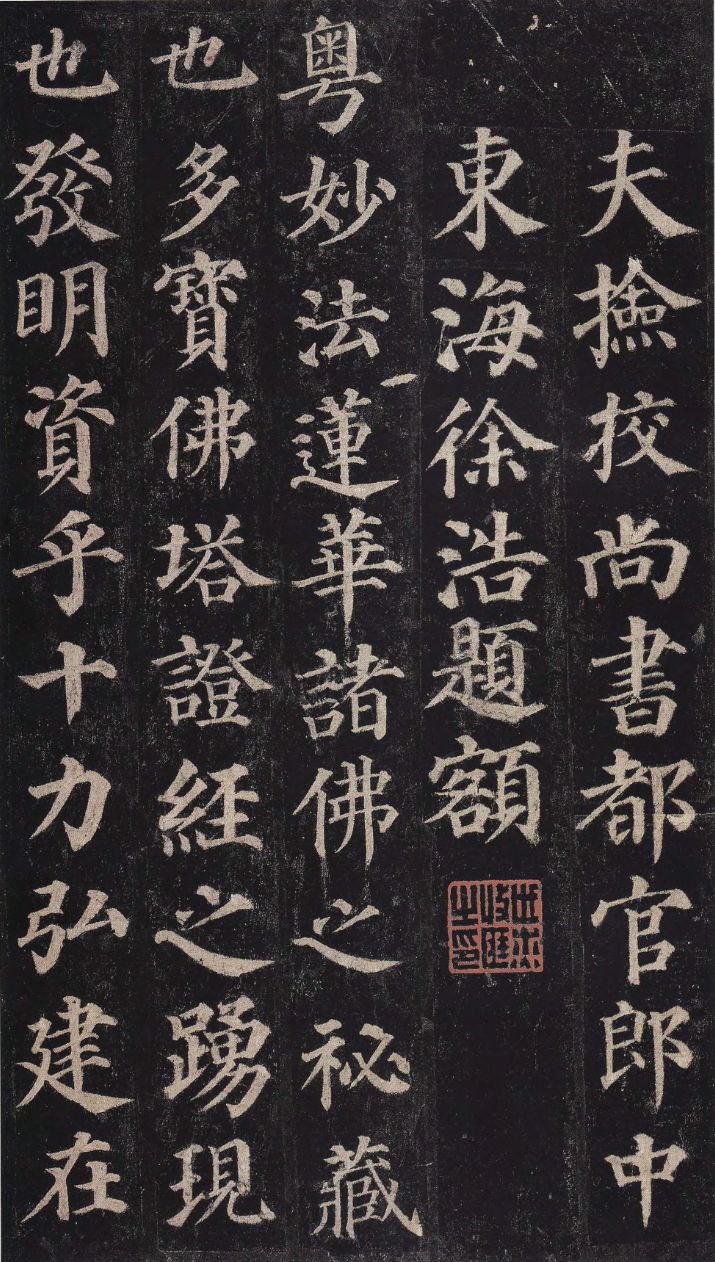 夫撿挍尚書都官郎中
東海徐浩題額
粤妙法蓮華諸佛之祕藏
也多寳佛塔證經之踴現
也發明資乎十力弘建在